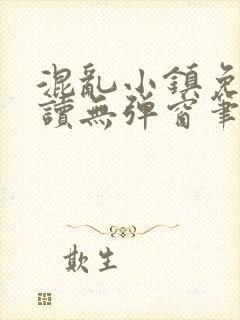 混亂小鎮免
讀無彈窗筆
欺生